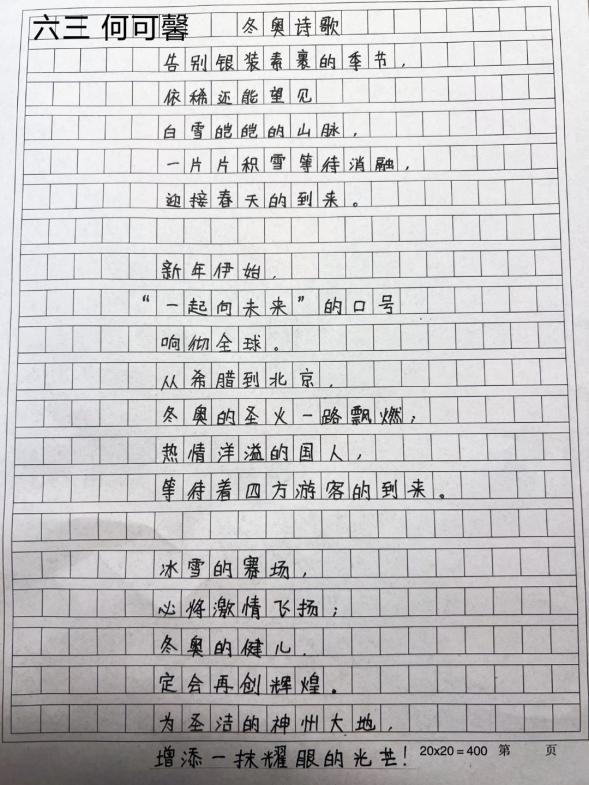 六三 何可馨
冬奥诗歌
告别银装素裹的季节,
依稀还能望见
白雪皑皑的山脉,
一片片积雪等待消融,
迎接春天的到来。
新年伊始,
“一起向未来”的口号
响彻全球。
从希腊到北京,
冬奥的圣火一路飘燃;
热情洋溢的国人,
等待着四方游客的到来。
冰雪的赛场,
必将激情飞扬;
冬奥的健儿,
定会再创辉煌。
为圣洁的神州大地,
增添一抹耀眼的光芒!
20x20=400 第 页